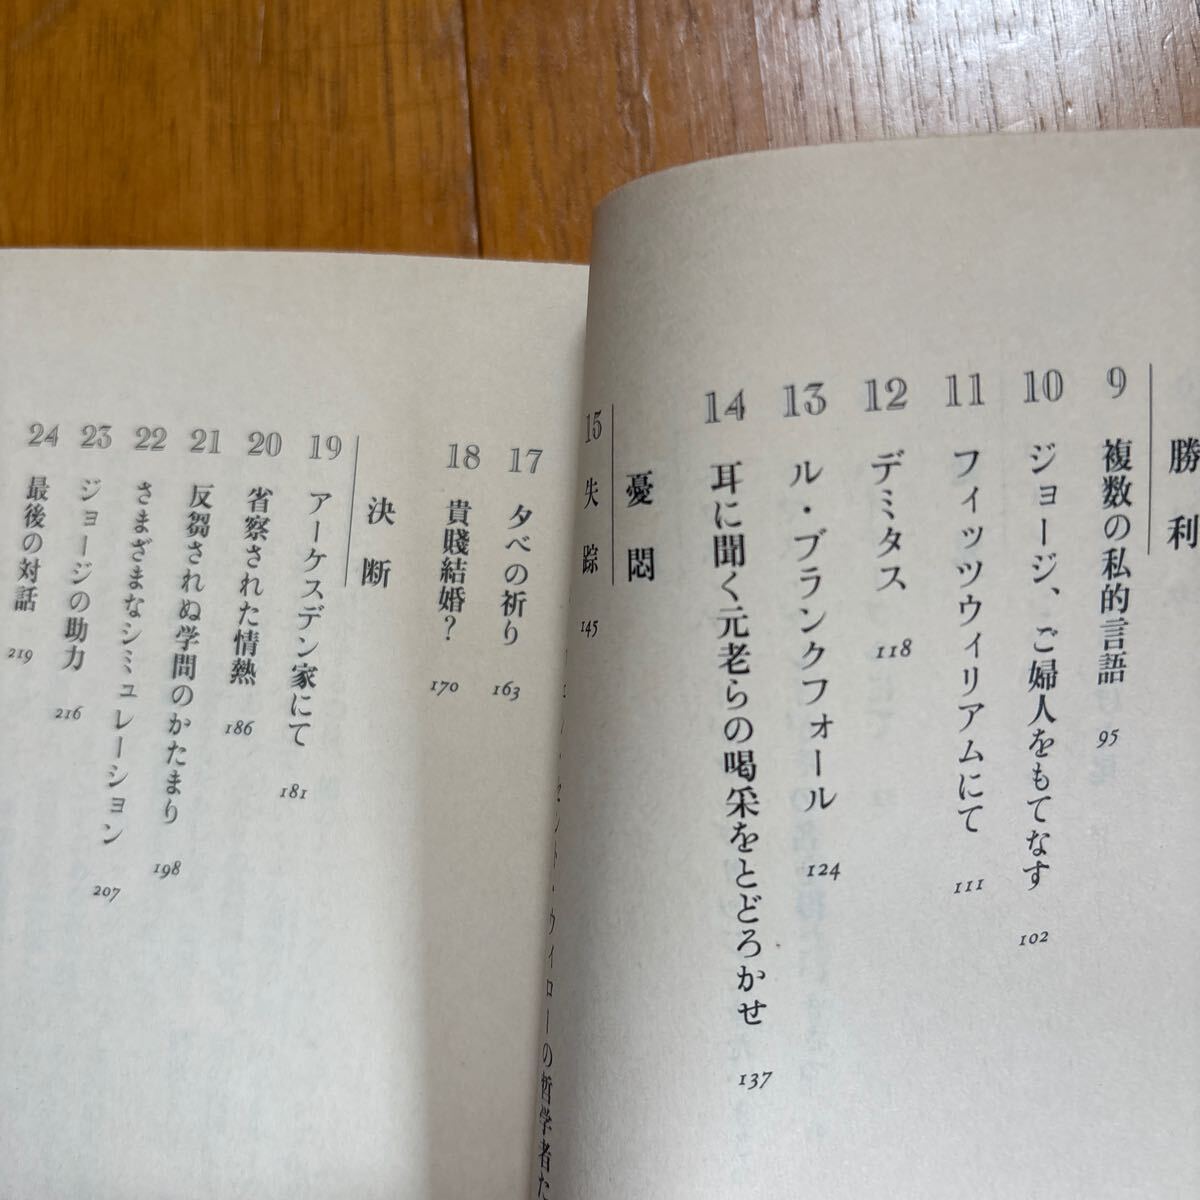 勝利
9 複数の私的言語 95
10 ジョージ、ご婦人をもてなす 102
11 フィッツウィリアムにて 111
12 デミタス 118
13 ル・ブランクフォール 124
14 耳に聞く元老らの喝采をとどろかせ 137
憂悶
15 失踪 145
ント・ウイローの哲学者た
17 夕べの祈り 163
18 貴賤結婚? 170
決断
19 アーケスデン家にて 181
20 省察された情熱 186
21 反芻されぬ学問のかたまり 198
22 さまざまなシミュレーション 207
23 ジョージの助力 216
24 最後の対話 219